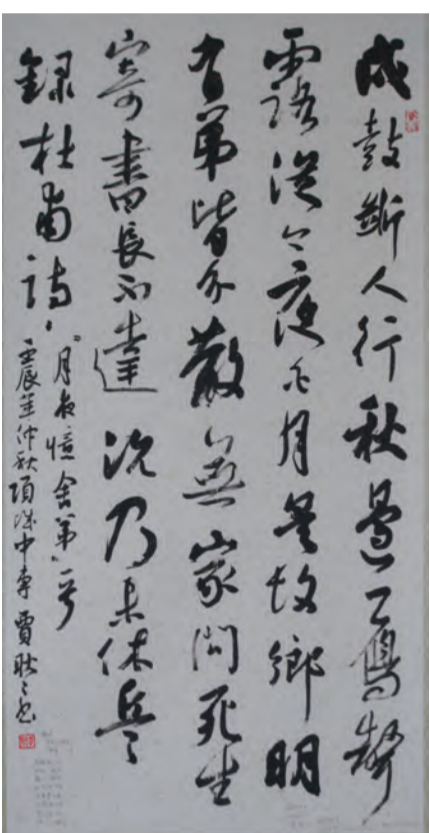 戍鼓斷人行秋邊一鴈聲
露從今夜白月是故鄉明
有弟皆分散無家問死生
寄書長不達況乃未休兵
録杜甫詩
月夜憶舍弟一首
壬辰年仲秋項城中專賈耿々書